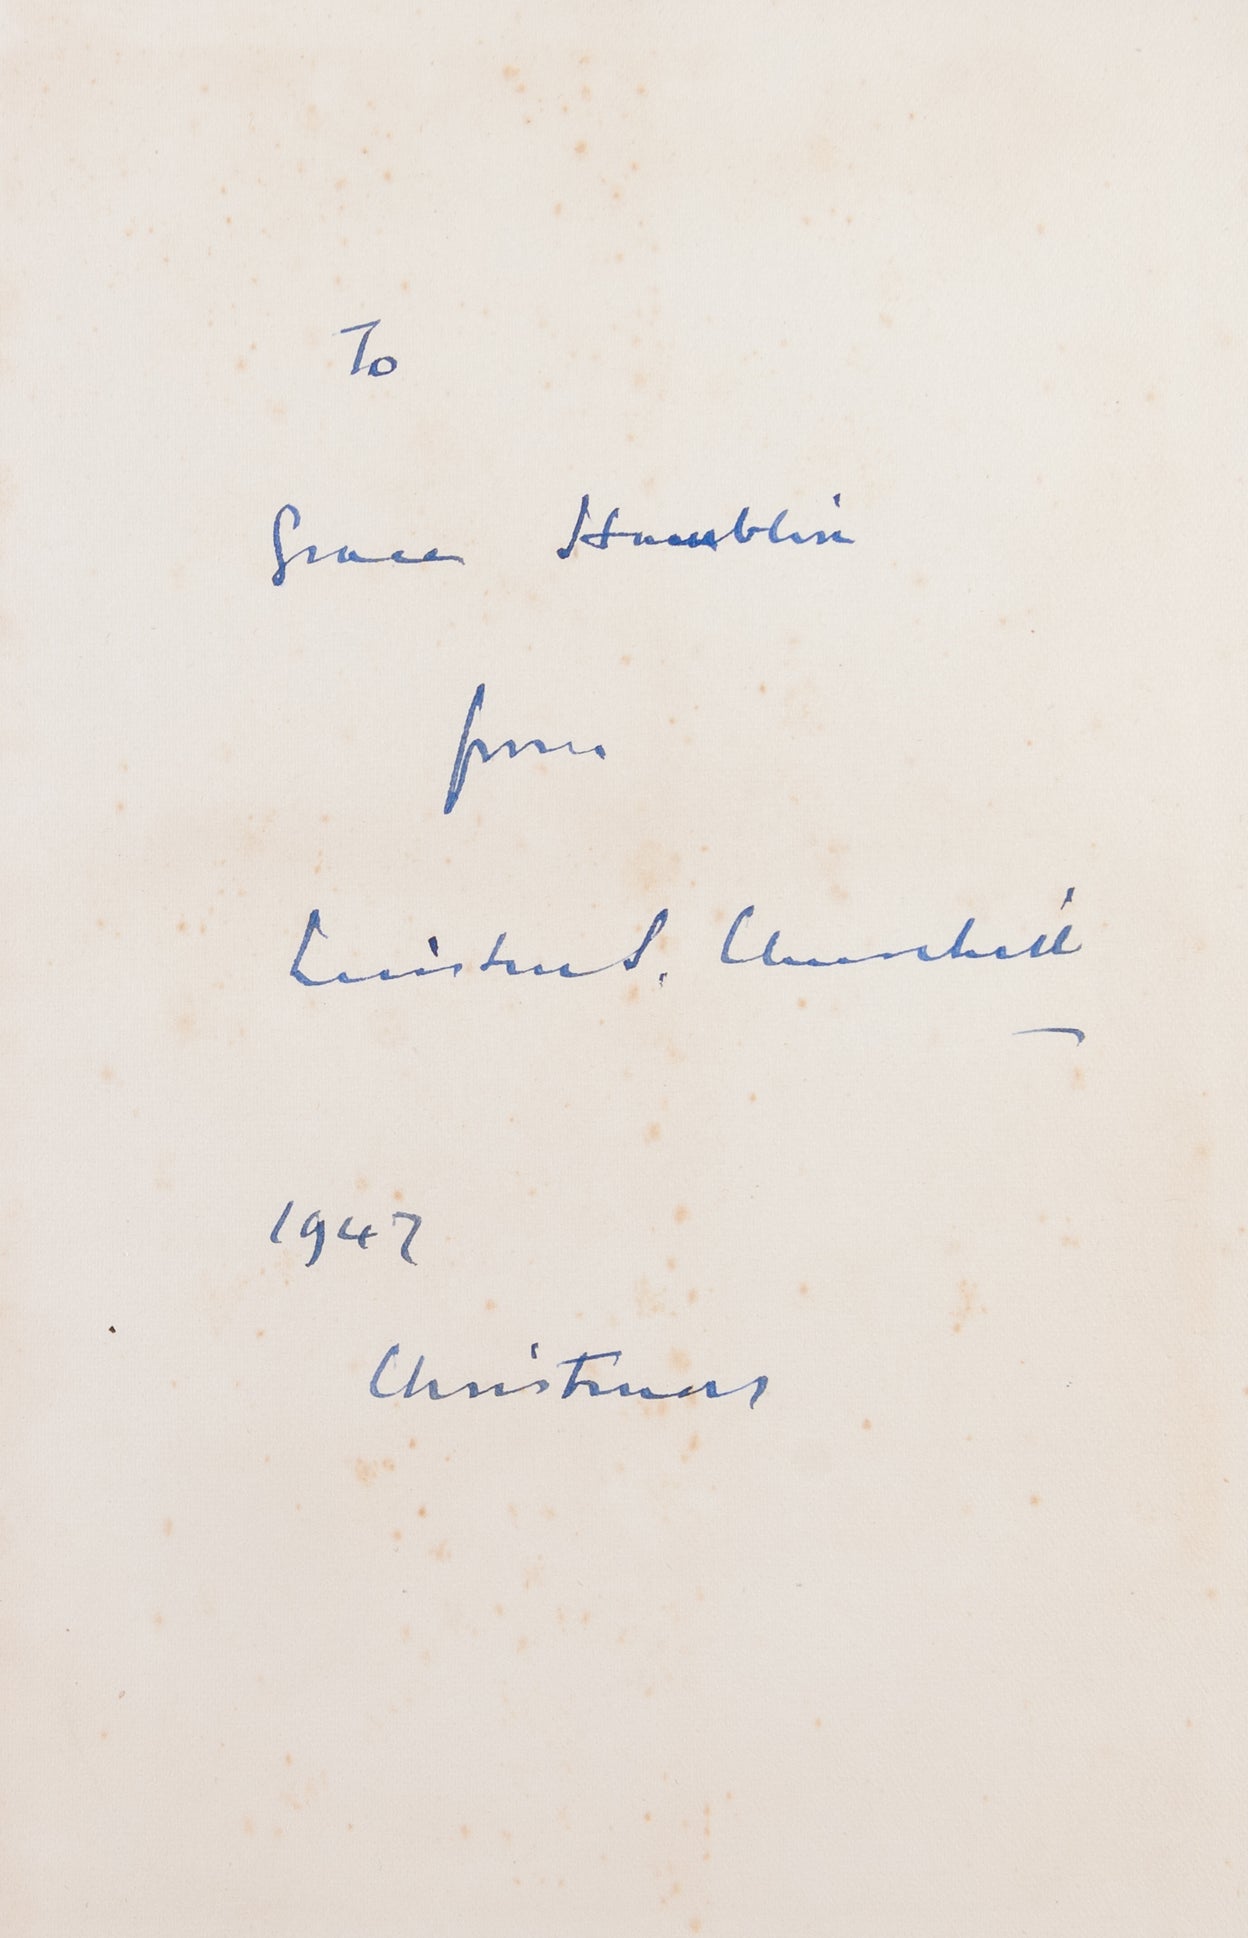 To
Grace Hamblin
from
Winston S. Churchill
1947
Christmas